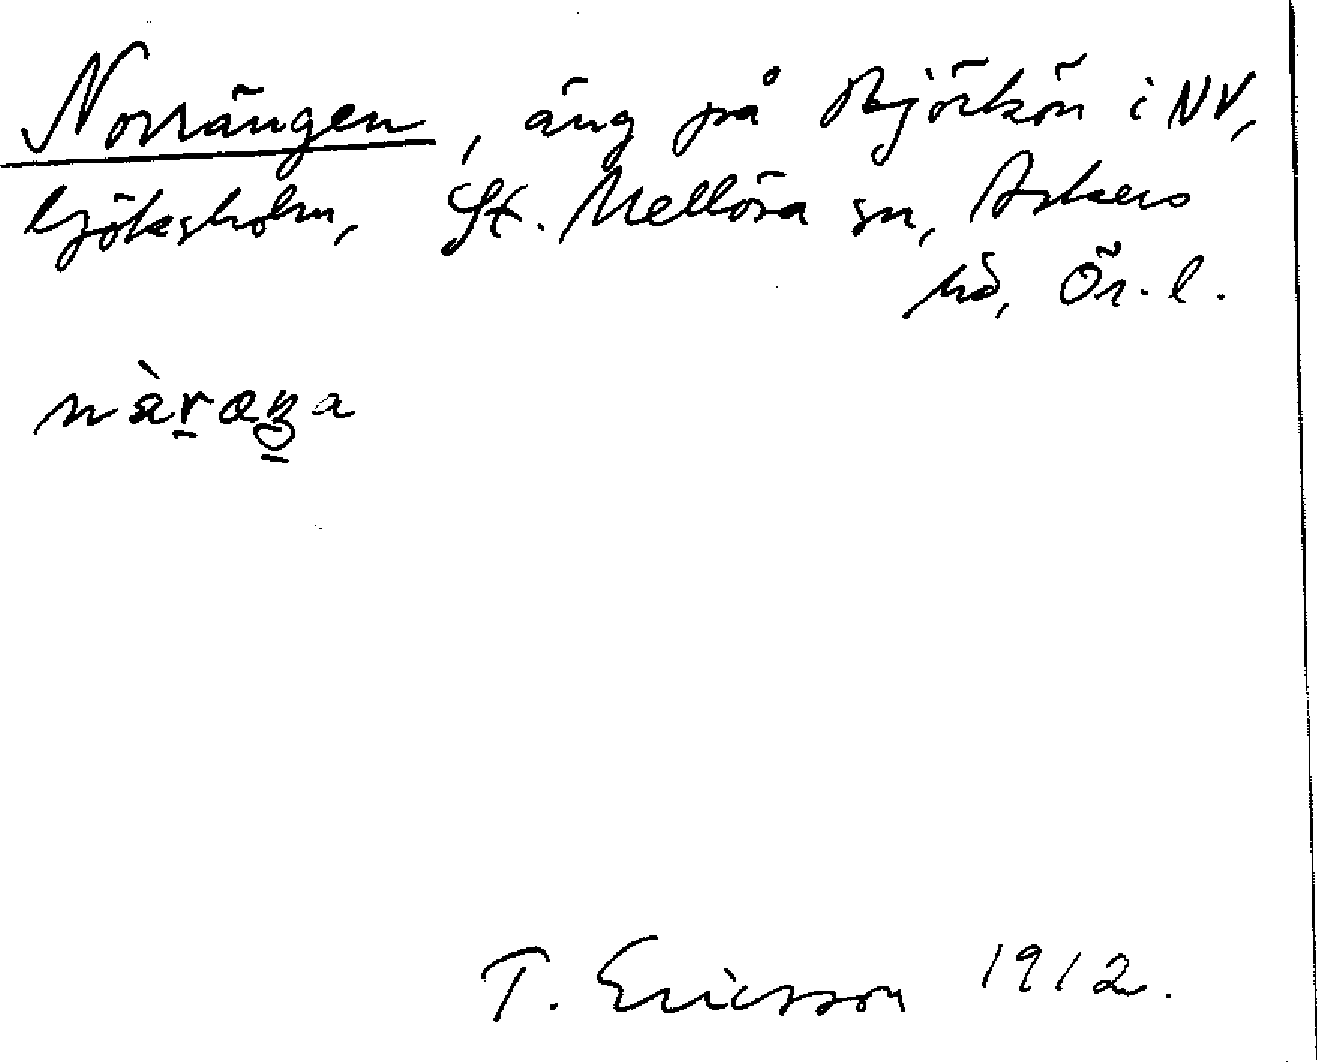 Norrängen, äng på Björkön i NV,
Göksholm, St. Mellösa sn, Askers
hd, Ör. l.
T. Ericsson 1912.